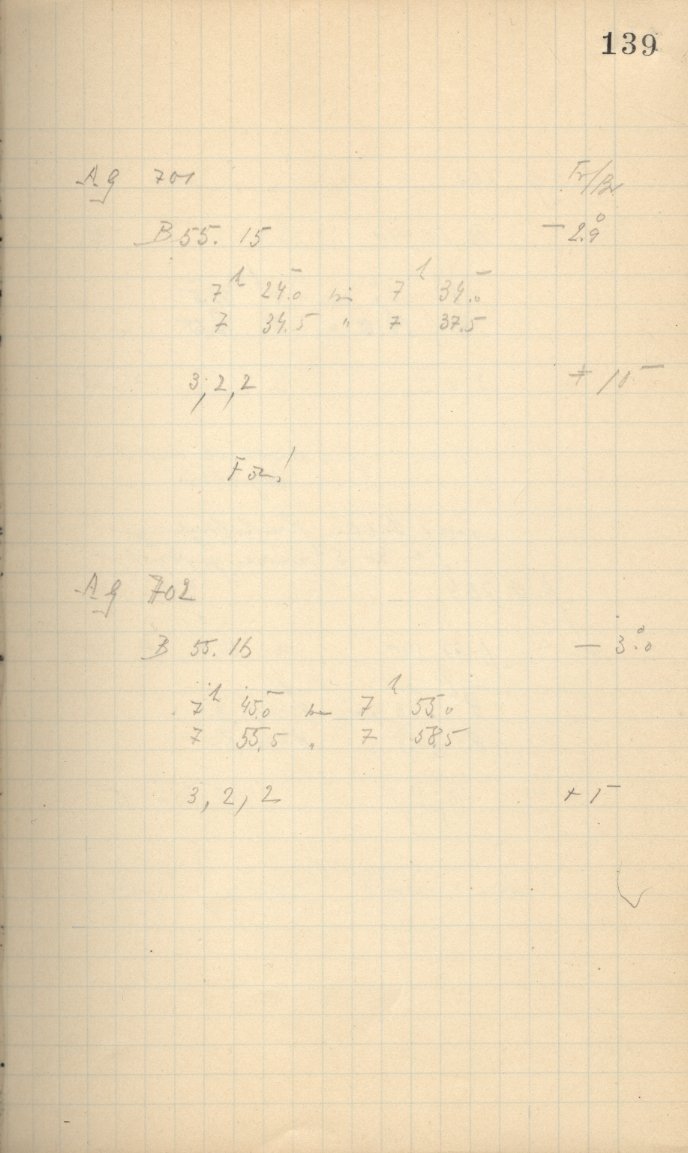 139
Ag 701 Fr/Br
B 55.15 − 2.°9
7h 24.0 bis 7h 34.0
7 34.5 " 7 37.5
3, 2, 2
Ag 702
B 55.16 − 3.°0
7h 45.0 bis 7h 55.0
7 55.5 " 7 58.5
3, 2, 2